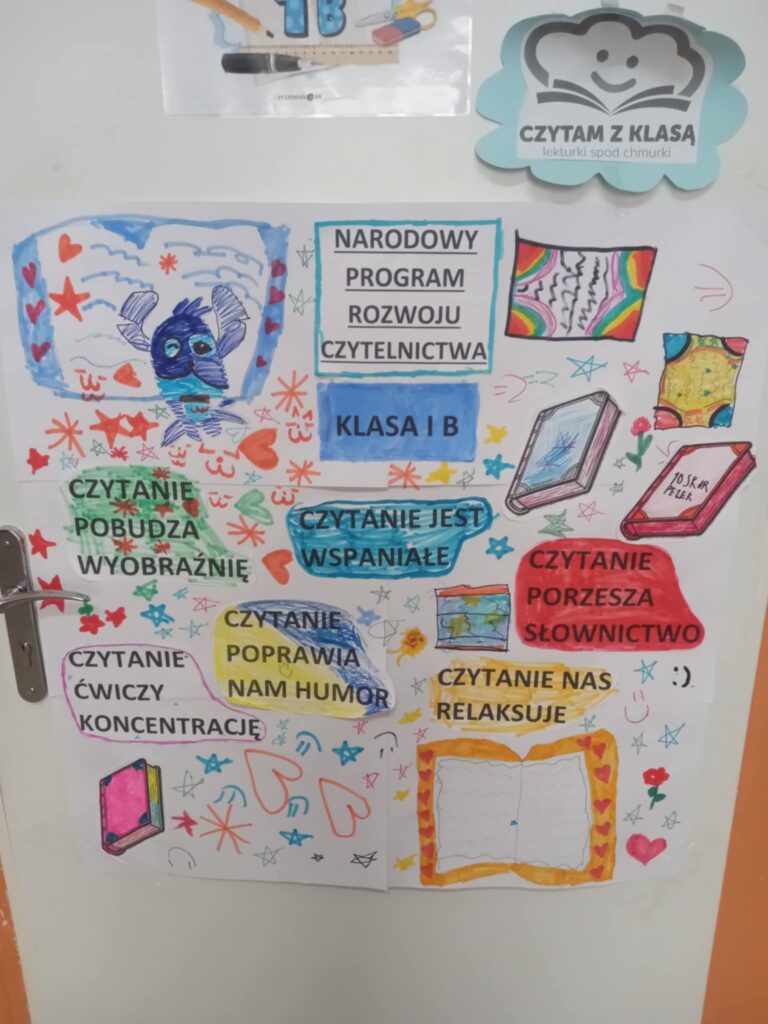 1B
CZYTAM Z KLASĄ
lekturki spod chmurki
NARODOWY
PROGRAM
ROZWOJU
CZYTELNICTWA
KLASA I B
CZYTANIE
POBUDZA
WYOBRAŹNIĘ
CZYTANIE JEST
WSPANIAŁE
CZYTANIE
PORZESZA
SŁOWNICTWO
CZYTANIE
POPRAWIA
NAM HUMOR
CZYTANIE
ĆWICZY
KONCENTRACJĘ
CZYTANIE NAS
RELAKSUJE
:)